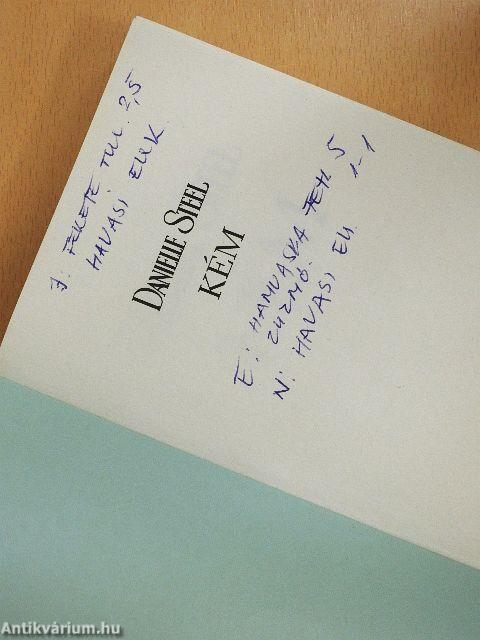 J: FEKETE TUL. 2,5
HAVASI ELLK
DANIELLE STEEL
KÉM
E: HAMVASKA FEH 5
ZUZMÓ.
N: HAVASI ELL 1-1
Antikvárium.hu